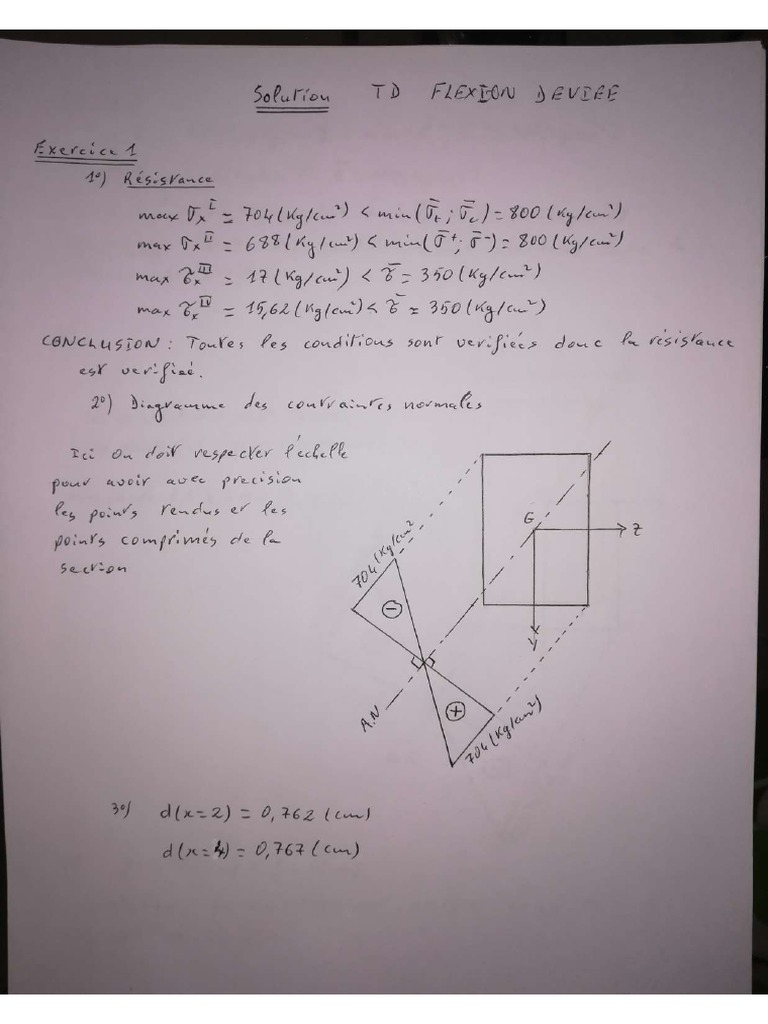 Solution TD FLEXION DEVIEE
Exercice 1
1°) Résistance
max σx^I = 704 (Kg/cm²) < min(σ̄t ; σ̄c) = 800 (Kg/cm²)
max σx^II = 688 (Kg/cm²) < min(σ̄⁺; σ̄⁻) = 800 (Kg/cm²)
max τx^III = 17 (Kg/cm²) < τ̄ = 350 (Kg/cm²)
max τx^IV = 15,62 (Kg/cm²) < τ̄ = 350 (Kg/cm²)
CONCLUSION : Toutes les conditions sont verifiées donc la résistance
est verifiée.
2°) Diagramme des contraintes normales
Ici on doit respecter l'échelle
pour avoir avec precision
les points tendus et les
points comprimés de la
section
G
Z
Y
704 (Kg/cm²
−
+
A.N
704 (Kg/cm²)
3°) d(x=2) = 0,762 (cm)
d(x=4) = 0,767 (cm)